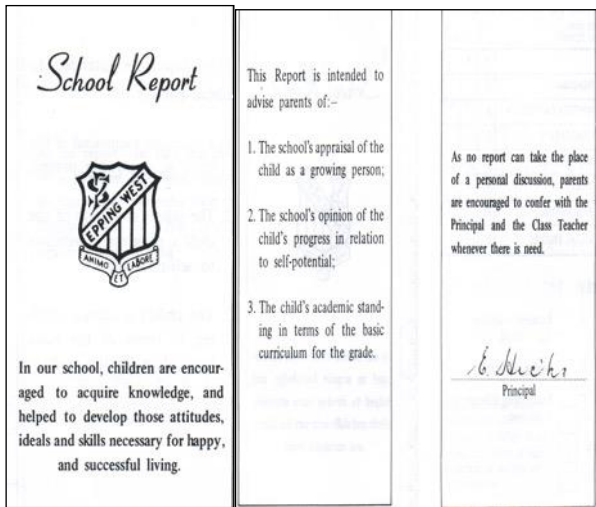 School Report
EPPING WEST
ANIMO ET LABORE
In our school, children are encour-
aged to acquire knowledge, and
helped to develop those attitudes,
ideals and skills necessary for happy,
and successful living.
This Report is intended to
advise parents of:–
1. The school's appraisal of the
child as a growing person;
2. The school's opinion of the
child's progress in relation
to self-potential;
3. The child's academic stand-
ing in terms of the basic
curriculum for the grade.
As no report can take the place
of a personal discussion, parents
are encouraged to confer with the
Principal and the Class Teacher
whenever there is need.
E.
Principal